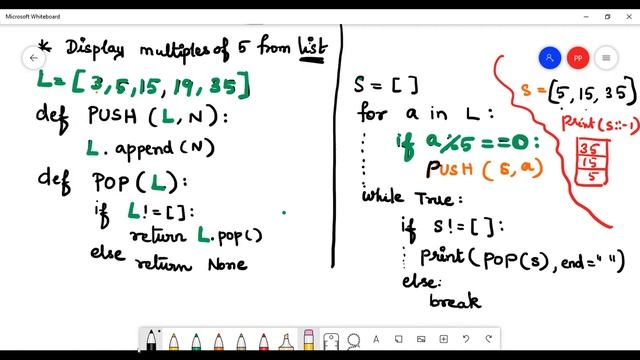 Microsoft Whiteboard
* Display multiples of 5 from list
L=[3,5,15,19,35]
def PUSH (L,N):
L.append(N)
def POP(L):
if L!=[]:
return L.pop()
else
return None
S=[]
for a in L:
if a%5==0:
PUSH(S,a)
while True:
if S!=[]:
print(POP(S),end=" ")
else:
break
S=[5,15,35]
print(S::-1)
35
15
5
PP
A